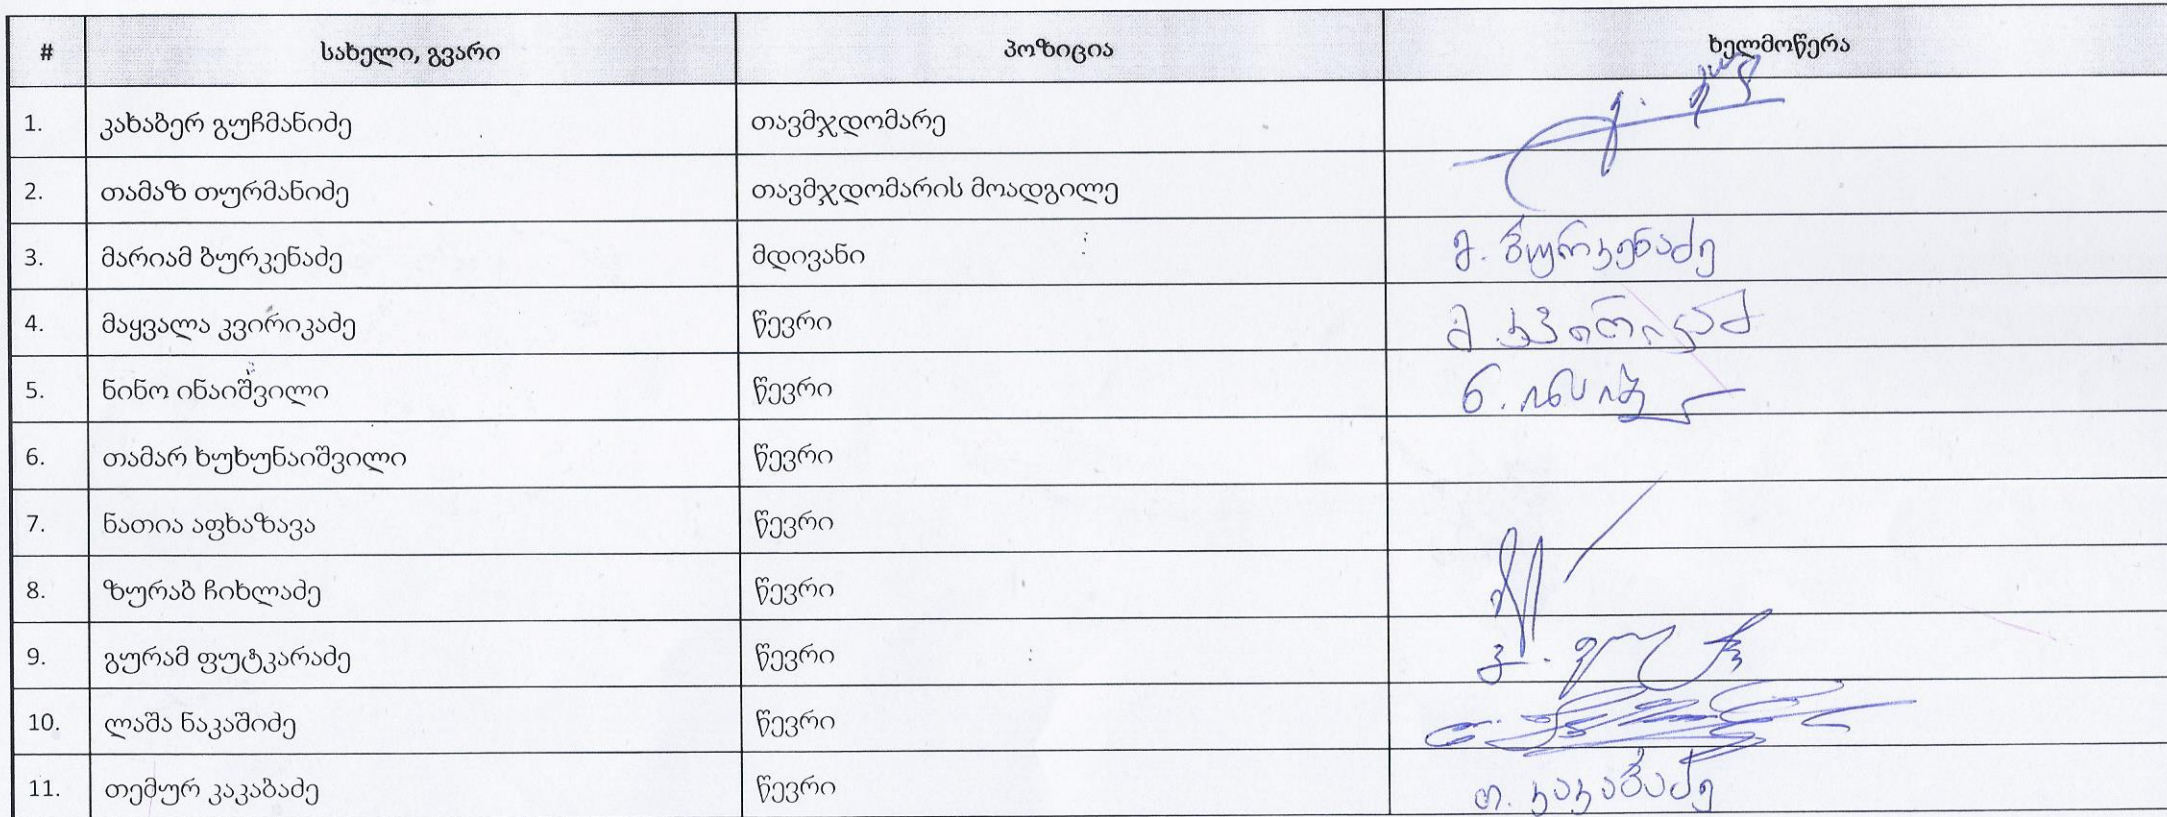 # სახელი, გვარი პოზიცია ხელმოწერა
1. კახაბერ გუჩმანიძე თავმჯდომარე
2. თამაზ თურმანიძე თავმჯდომარის მოადგილე
3. მარიამ ბურკენაძე მდივანი მ. ბურკენაძე
4. მაყვალა კვირიკაძე წევრი
5. ნინო ინაიშვილი წევრი
6. თამარ ხუხუნაიშვილი წევრი
7. ნათია აფხაზავა წევრი
8. ზურაბ ჩიხლაძე წევრი
9. გურამ ფუტკარაძე წევრი
10. ლაშა ნაკაშიძე წევრი
11. თემურ კაკაბაძე წევრი თ. კაკაბაძე